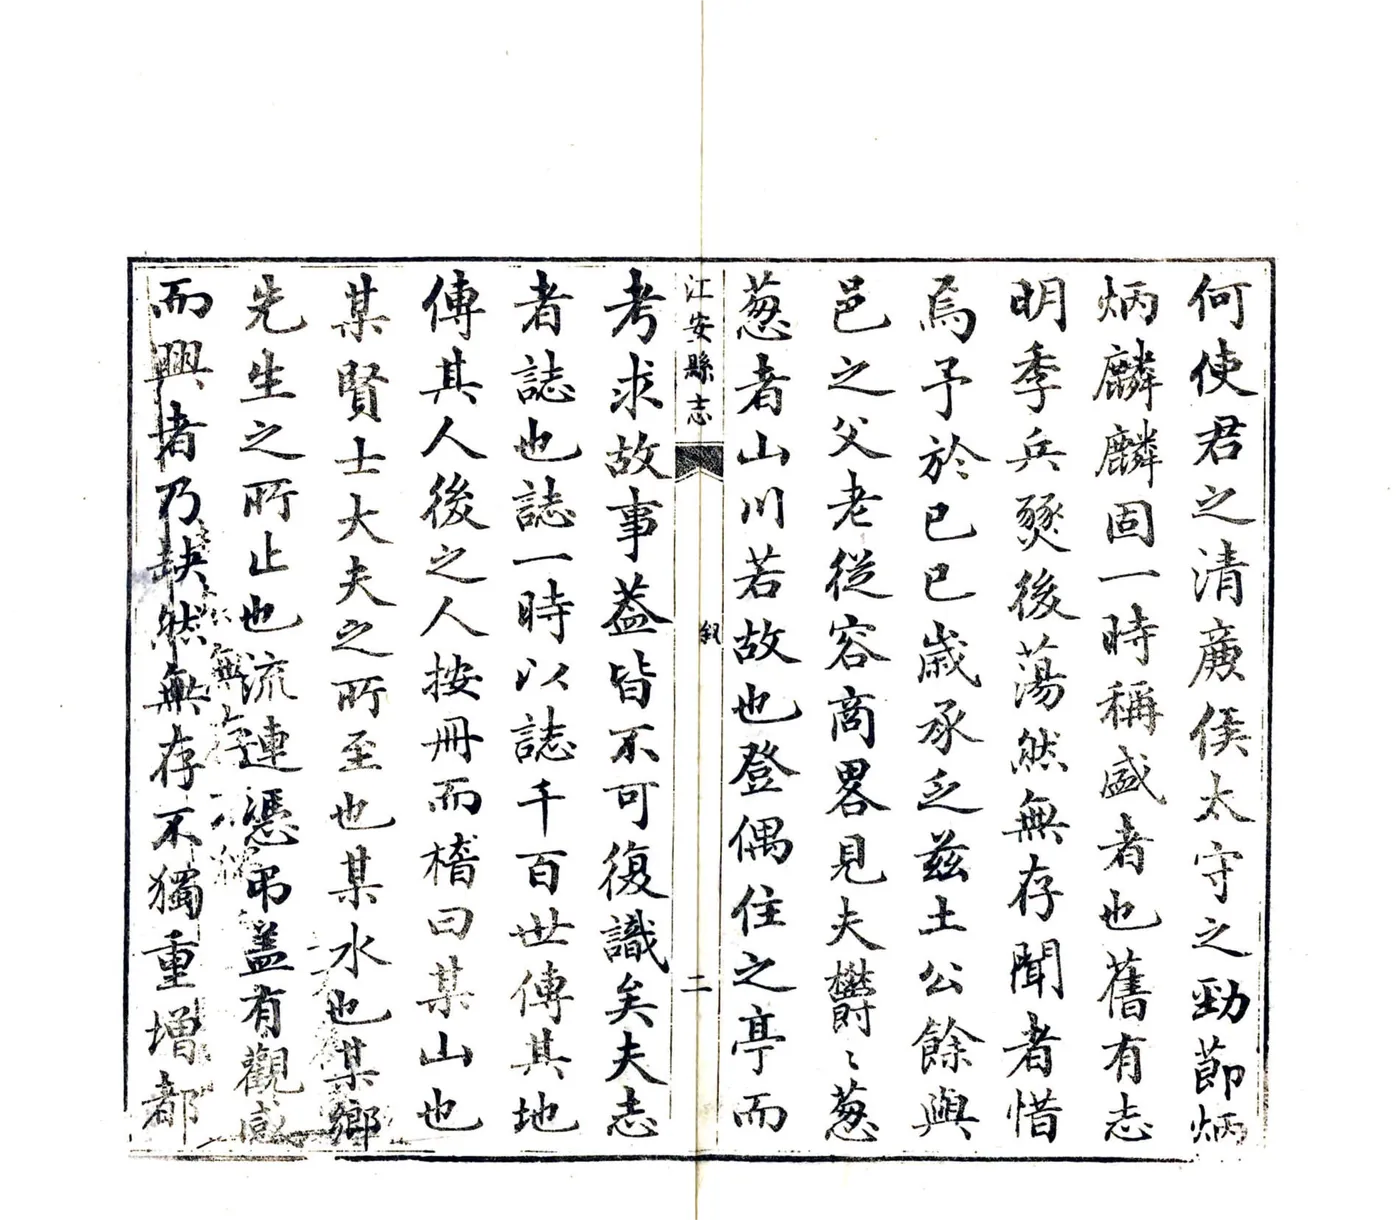 何使君之清廉侯太守之勁莭炳
炳麟麟固一時稱盛者也舊有志
明季兵燹後蕩然無存聞者惜
焉予於已巳歲承乏兹土公餘與
邑之父老從容商畧見夫欝〻葱
葱者山川若故也登偶住之亭而
江安縣志
叙
二
考求故事葢皆不可復識矣夫志
者誌也誌一時以誌千百世傳其地
傳其人後之人按冊而稽曰某山也
某賢士大夫之所至也某水也某鄉
先生之所止也流連憑吊盖有觀感
而興者乃缺然無存不獨重增都